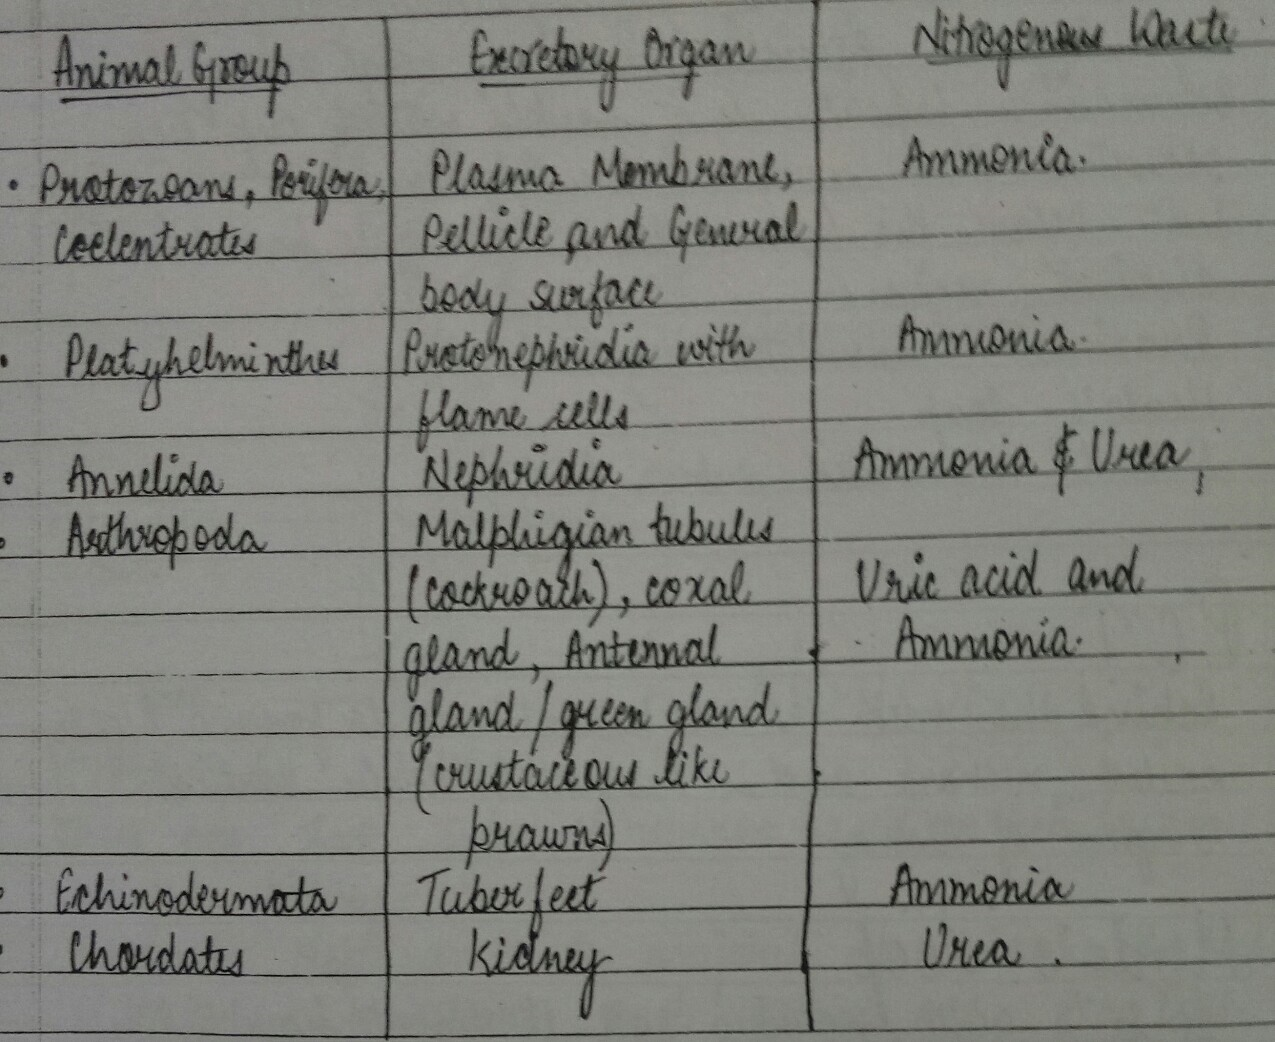 Animal Group Excretory Organ Nitrogenous Waste
• Protozoans, Porifera, Plasma Membrane, Ammonia.
Coelentrates Pellicle and General
body surface
• Platyhelminthes Protonephridia with Ammonia.
flame cells
• Annelida Nephridia Ammonia & Urea,
• Arthropoda Malphigian tubules
(cockroath), coxal Uric acid and
gland, Antennal Ammonia.
gland / green gland
(crustaceous like
prawns)
• Echinodermata Tuber feet Ammonia
• Chordates Kidney Urea.